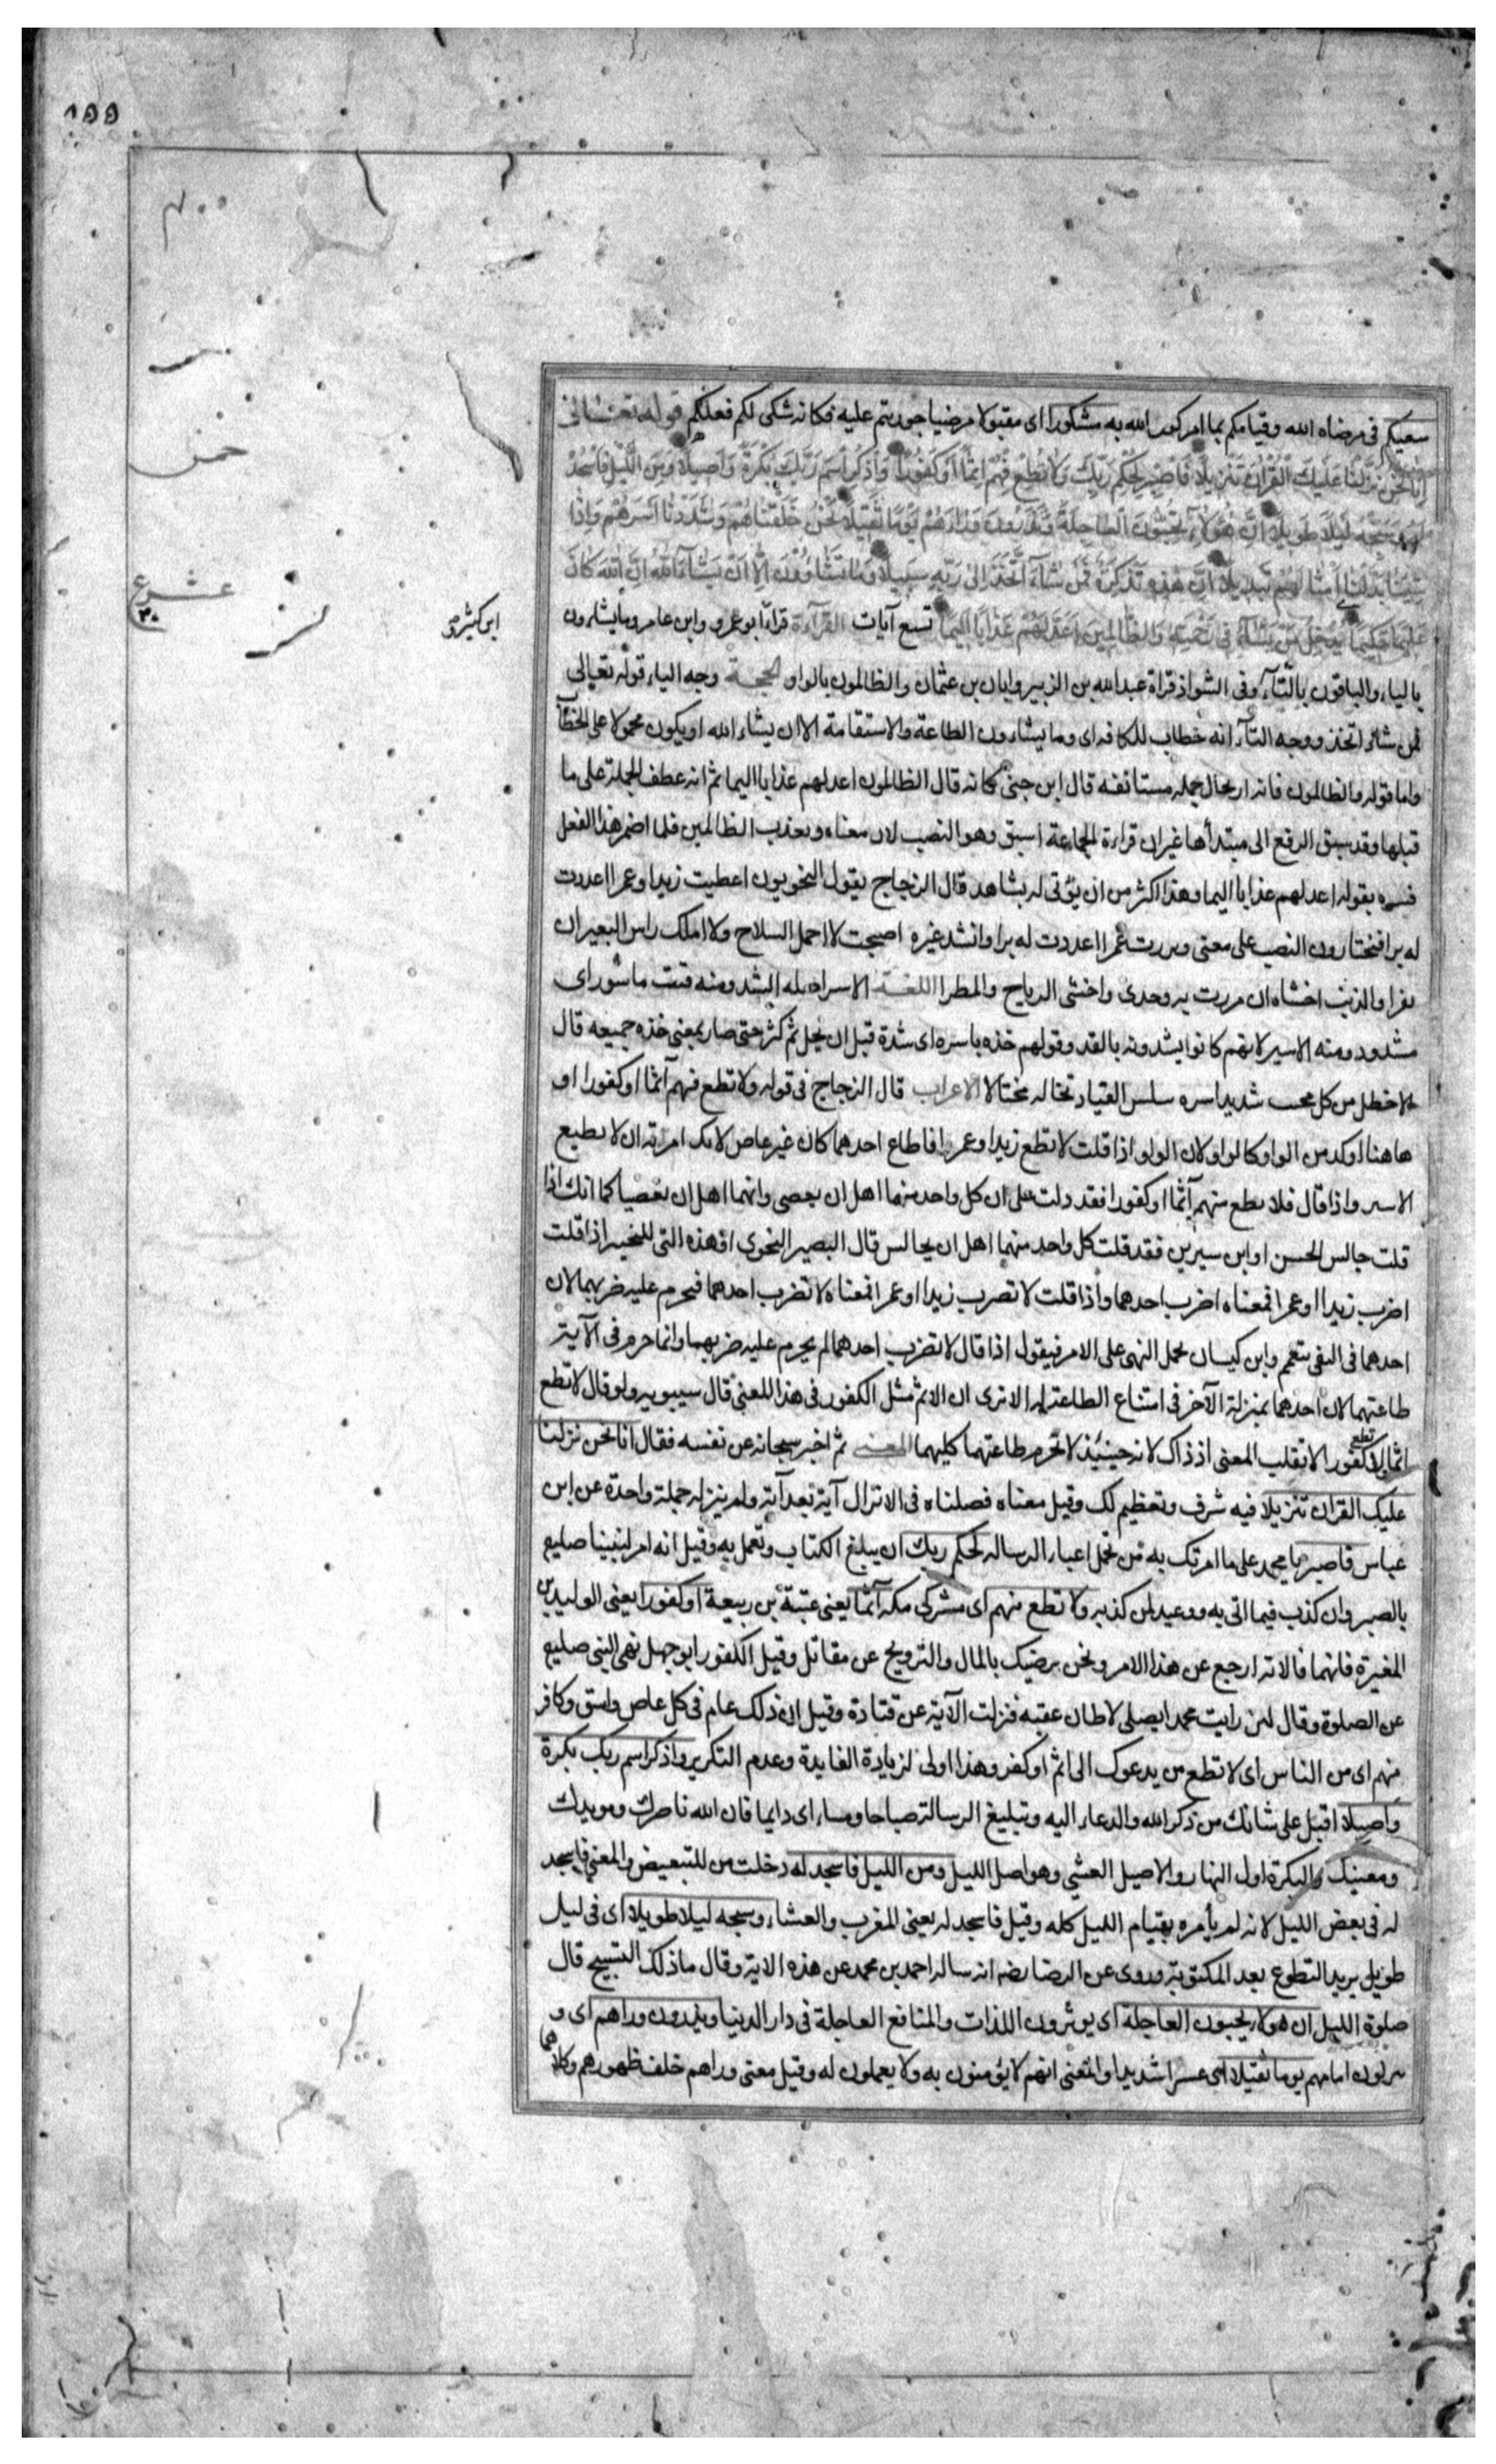 ١٥٥
٣٠٠
خمس
عشر ع
٣٠
ابن كثير و
سعيكم فى مرضاه الله وقيامكم بما امركم الله به مشكورا اى مقبولا مرضيا جوزيتم عليه فكانه شكى لكم فعلكم قوله تعالى
إِنَّا نَحْنُ نَزَّلْنَا عَلَيْكَ الْقُرْآنَ تَنْزِيلًا فَاصْبِرْ لِحُكْمِ رَبِّكَ وَلَا تُطِعْ مِنْهُمْ آثِمًا أَوْ كَفُورًا وَاذْكُرِ اسْمَ رَبِّكَ بُكْرَةً وَأَصِيلًا وَمِنَ اللَّيْلِ فَاسْجُدْ
لَهُ وَسَبِّحْهُ لَيْلًا طَوِيلًا إِنَّ هَؤُلَاءِ يُحِبُّونَ الْعَاجِلَةَ وَيَذَرُونَ وَرَاءَهُمْ يَوْمًا ثَقِيلًا نَحْنُ خَلَقْنَاهُمْ وَشَدَدْنَا أَسْرَهُمْ وَإِذَا
شِئْنَا بَدَّلْنَا أَمْثَالَهُمْ تَبْدِيلًا إِنَّ هَذِهِ تَذْكِرَةٌ فَمَنْ شَاءَ اتَّخَذَ إِلَى رَبِّهِ سَبِيلًا وَمَا تَشَاؤُنَ إِلَّا أَنْ يَشَاءَ اللَّهُ إِنَّ اللَّهَ كَانَ
عَلِيمًا حَكِيمًا يُدْخِلُ مَنْ يَشَاءُ فِي رَحْمَتِهِ وَالظَّالِمِينَ أَعَدَّ لَهُمْ عَذَابًا أَلِيمًا تسع آيات القراءة قرا ابو عمرو وابن عامر وما يشاءون
بالياء والباقون بالتاء وفى الشواذ قراة عبدالله بن الزبير وابان بن عثمان والظالمون بالواو الحجة وجه الياء قوله تعالى
فمن شاء اتخذ ووجه التاء انه خطاب للكافه اى وما يشاءون الطاعة والاستقامة الا ان يشاء الله او يكون محمولا على الخطاب
واما قوله والظالمون فانه ارتجال جمله مستانفه قال ابن جنى كانه قال الظالمون اعد لهم عذابا اليما ثم انه عطف الجملة على ما
قبلها وقد سبق الرفع الى مبتدأها غير ان قراءة الجماعة اسبق وهو النصب لان معناه ويعذب الظالمين فلما اضمر هذا الفعل
فسره بقوله اعد لهم عذابا اليما وهذا اكثر من ان يؤتى له بشاهد قال الزجاج يقول النحويون اعطيت زيدا وعمرا اعددت
له برا فيختارون النصب على معنى وبررت عمرا اعددت له برا وانشد غيره اصبحت لا احمل السلاح ولا املك راس البعير ان
نفرا والذئب اخشاه ان مررت به وحدى واخشى الرياح والمطرا اللغة الاسر اصله الشد ومنه قتب ماسور اى
مشدود ومنه الاسير لانهم كانوا يشدونه بالقد وقولهم خذه باسره اى شدة قبل ان يحل ثم كثر حتى صار بمعنى خذه جميعه قال
الاخطل من كل محسب شديد اسره سلس القياد تخاله مختالا الاعراب قال الزجاج فى قوله ولا تطع منهم آثما او كفورا او
هاهنا اوكد من الواو كالواو لان الواو اذا قلت لا تطع زيدا وعمرا فاطاع احدهما كان غير عاص لانك امرته ان لا يطيع
الاسر واذا قال فلا تطع منهم آثما او كفورا فقد دلت على ان كل واحد منهما اهل ان يعصى وانهما اهل ان يعصيا كما انك اذا
قلت جالس الحسن او ابن سيرين فقد قلت كل واحد منهما اهل ان يجالس قال البصير النحوى او هذه التى للتخيير اذا قلت
اضرب زيدا او عمرا فمعناه اضرب احدهما واذا قلت لا تضرب زيدا او عمرا فمعناه لا تضرب احدهما فيحرم عليه ضربهما لان
احدهما فى النفى يتعمم وابن كيسان يحمل النهى على الامر فيقول اذا قال لا تضرب احدهما لم يحرم عليه ضربهما وانما حرم فى الآية
طاعتهما لان احدهما بمنزلة الآخر فى امتناع الطاعة له الا ترى ان الاثم مثل الكفور فى هذا المعنى قال سيبويه ولو قال لا تطع
اثما ولا تطع كفورا لانقلب المعنى اذ ذاك لانه حينئذ لا تحرم طاعتهما كليهما المعنى ثم اخبر سبحانه عن نفسه فقال انا نحن نزلنا
عليك القران تنزيلا فيه شرف وتعظيم لك وقيل معناه فصلناه فى الانزال آية بعد آية ولم ينزله جملة واحدة عن ابن
عباس فاصبر يا محمد على ما امرتك به من تحمل اعباء الرساله لحكم ربك ان يبلغ الكتاب وتعمل به وقيل انه امر لنبينا صليع
بالصبر وان كذب فيما اتى به ووعيد لمن كذبه ولا تطع منهم اى مشركى مكه آثما يعنى عتبة بن ربيعة او كفورا يعنى الوليد بن
المغيرة فانهما قالا له ارجع عن هذا الامر ونحن نرضيك بالمال والتزويج عن مقاتل وقيل الكفور ابو جهل نهى النبى صليع
عن الصلوة وقال لئن رايت محمدا يصلى لاطان عقبه فنزلت الآية عن قتادة وقيل ان ذلك عام فى كل عاص واسق وكافر
منهم اى من الناس اى لا تطع من يدعوك الى اثم او كفر وهذا اولى لزيادة الفايدة وعدم التكرير واذكر اسم ربك بكرة
واصيلا اقبل على شانك من ذكر الله والدعاء اليه وتبليغ الرسالة صباحا ومساء اى دايما فان الله ناصرك ومويدك
ومعينك والبكرة اول النهار والاصيل العشى وهو اصل الليل ومن الليل فاسجد له دخلت من للتبعيض والمعنى فاسجد
له فى بعض الليل لانه لم يأمره بقيام الليل كله وقيل فاسجد له يعنى المغرب والعشاء وسبحه ليلا طويلا اى فى ليل
طويل يريد التطوع بعد المكتوبة وروى عن الرضا رضه انه ساله احمد بن محمد عن هذه الاية وقال ما ذلك التسبيح قال
صلوة الليل ان هولاء يحبون العاجلة اى يوثرون اللذات والمنافع العاجلة فى دار الدنيا ويذرون وراهم اى و
يتركون امامهم يوما ثقيلا اى عسرا شديدا والمعنى انهم لا يؤمنون به ولا يعملون له وقيل معنى وراهم خلف ظهورهم وكلاهما